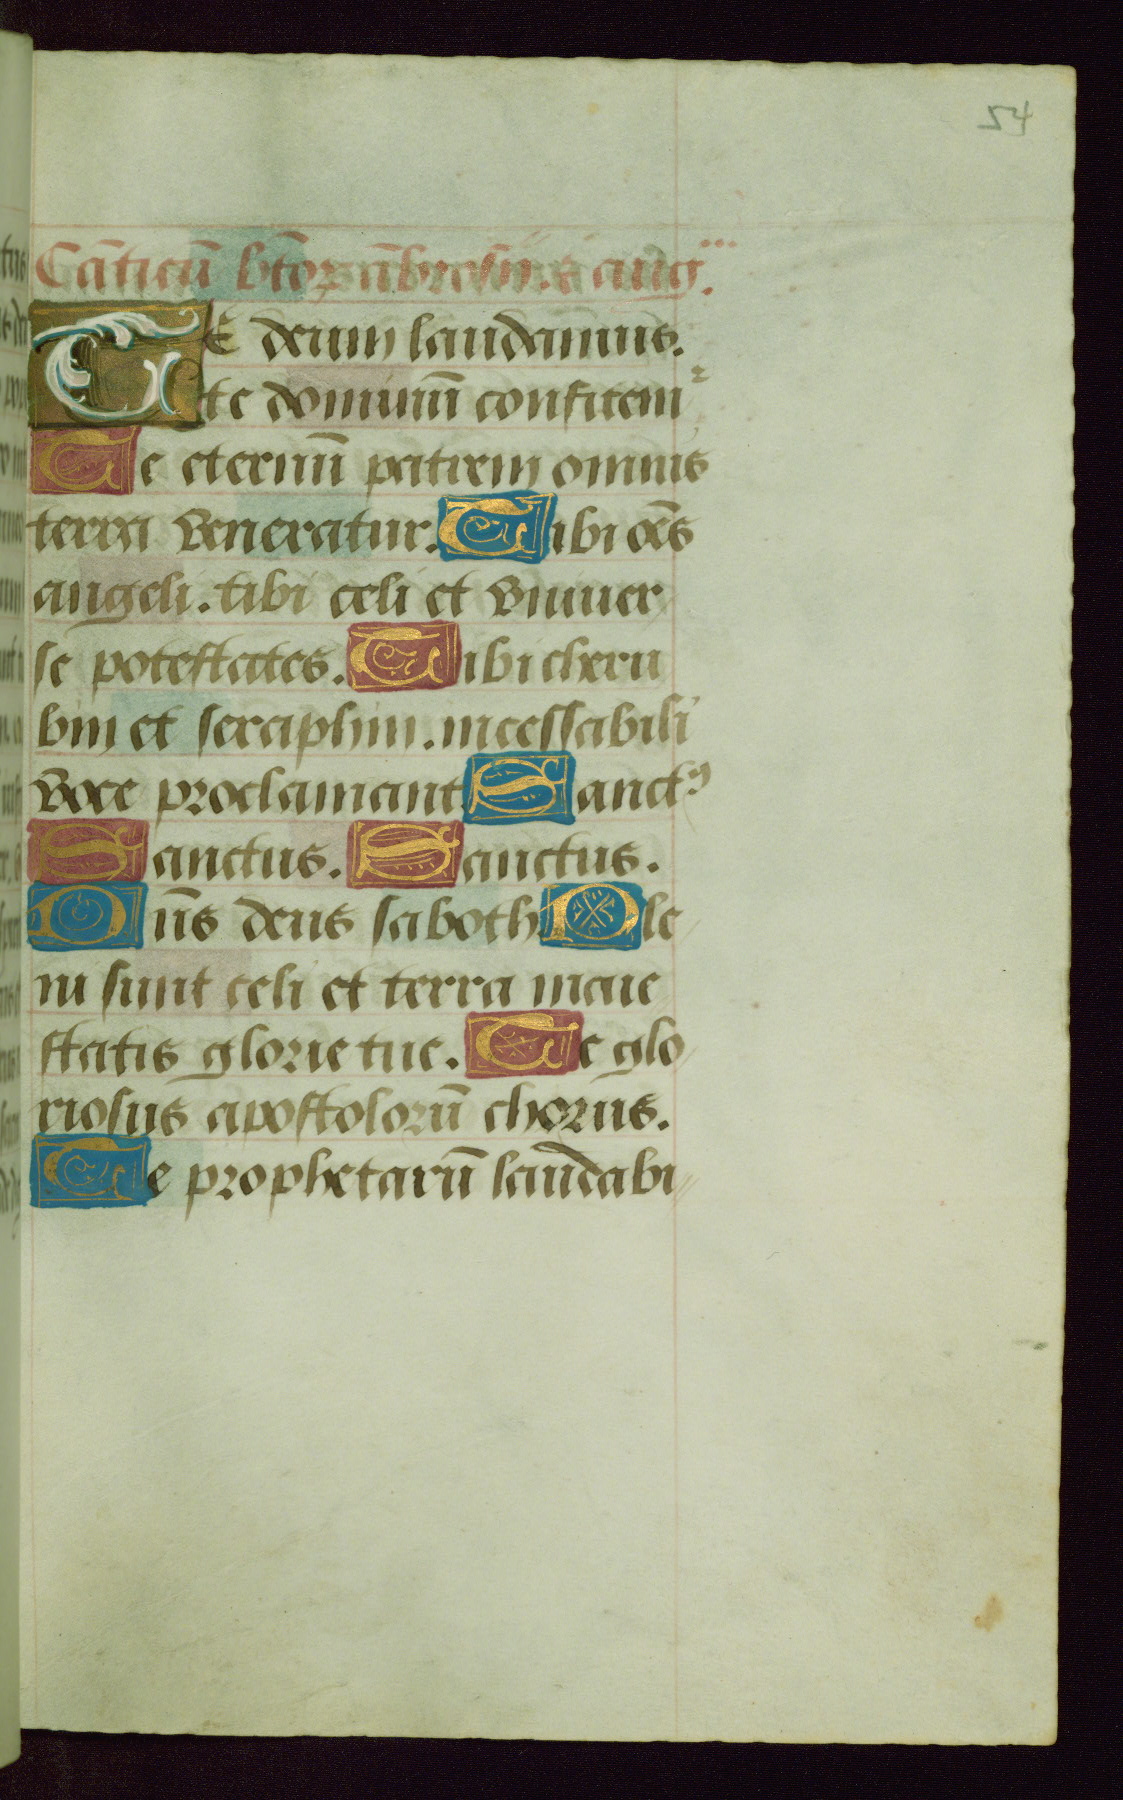 54
Cãticũ btõrꝝ ãbrosij. ⁊ aug.
TE deum laudamus.
te dominũ confitemᷣ
Te eternũ patrem omnis
terra veneratur. Tibi oẽs
angeli. tibi celi et vniuer
se potestates. Tibi cheru
bin et seraphin. incessabili
voce proclamant Sanctꝰ
Sanctus. Sanctus.
Dñs deus saboth. Ple
ni sunt celi et terra maie
statis glorie tue. Te glo
riosus apostolorũ chorus.
Te prophetarũ laudabi